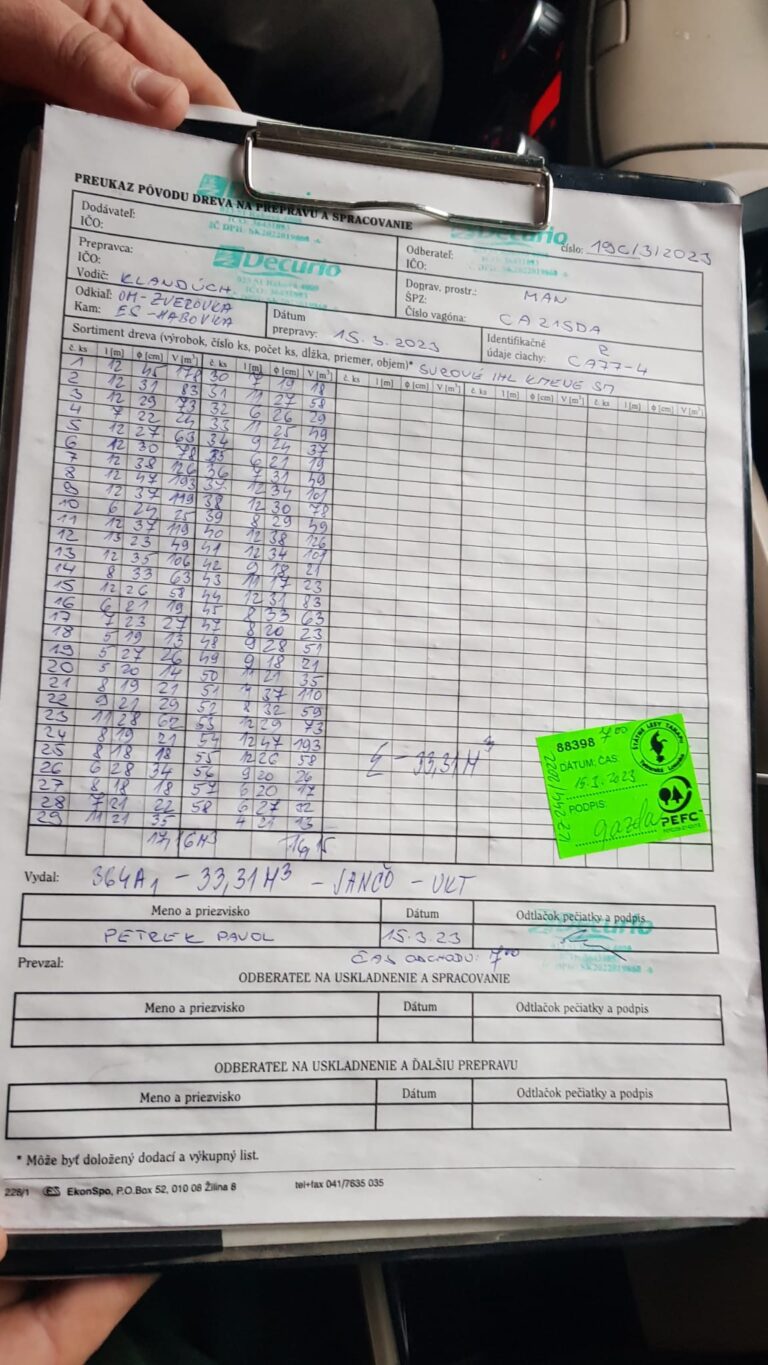 PREUKAZ PÔVODU DREVA NA PREPRAVU A SPRACOVANIE
Decurio
IČ DPH: SK2022019868
Decurio
Dodávateľ:
IČO:
Odberateľ:
IČO:
číslo: 19C/3/2023
Prepravca:
IČO:
Vodič: KLANDUCH.
Decurio
Doprav. prostr.: MAN
ŠPZ:
Číslo vagóna: CA 215DA
Odkiaľ: OM-ZVEROVKA
Kam: ES-HABOVKA
Dátum
prepravy: 15.3.2023
Identifikačné
údaje ciachy: CA77-4
Sortiment dreva (výrobok, číslo ks, počet ks, dĺžka, priemer, objem)* SUROVÉ IHL KMEVE SM
č. ks l [m] ϕ [cm] V [m³] č. ks l [m] ϕ [cm] V [m³] č. ks l [m] ϕ [cm] V [m³] č. ks l [m] ϕ [cm] V [m³] č. ks l [m] ϕ [cm] V [m³]
1 12 45 178 30 7 19 18
2 12 31 83 31 11 27 58
3 12 29 73 32 6 26 29
4 7 22 24 33 11 25 49
5 12 27 63 34 9 24 37
6 12 30 78 35 6 21 19
7 12 38 126 36 7 31 49
8 12 47 193 37 12 34 101
9 12 37 119 38 12 30 78
10 6 24 25 39 8 29 49
11 12 37 119 40 12 38 126
12 13 23 49 41 12 34 101
13 12 35 106 42 9 18 21
14 8 33 63 43 11 17 23
15 12 26 58 44 12 31 83
16 6 21 19 45 8 33 63
17 7 23 27 47 8 20 23
18 5 19 13 48 9 28 51
19 5 27 26 49 9 18 21
20 5 20 14 50 11 21 35
21 8 19 21 51 37 110
22 9 21 29 52 8 32 59
23 11 28 62 53 12 29 73
24 8 19 21 54 12 47 193
25 8 18 18 55 12 26 58
26 6 28 34 56 9 20 26
27 8 18 18 57 6 20 17
28 7 21 22 58 6 27 32
29 11 21 35 4 21 13
17,16M³ 16,15
Σ - 33,31M³
88398 7⁰⁰
DÁTUM, ČAS:
15.3.2023
PODPIS:
gazda
LZ 244/2022
ŠTÁTNE LESY TANAPU
PEFC
Vydal: 364A₁ - 33,31M³ - JANČO - VKT
Meno a priezvisko Dátum Odtlačok pečiatky a podpis
PETREK PAVOL 15.3.23
Decurio
Prevzal: ČAS ODCHODU: 7⁰⁰
ODBERATEĽ NA USKLADNENIE A SPRACOVANIE
Meno a priezvisko Dátum Odtlačok pečiatky a podpis
ODBERATEĽ NA USKLADNENIE A ĎALŠIU PREPRAVU
Meno a priezvisko Dátum Odtlačok pečiatky a podpis
* Môže byť doložený dodací a výkupný list.
228/1 ES EkonSpo, P.O.Box 52, 010 08 Žilina 8 tel+fax 041/7635 035